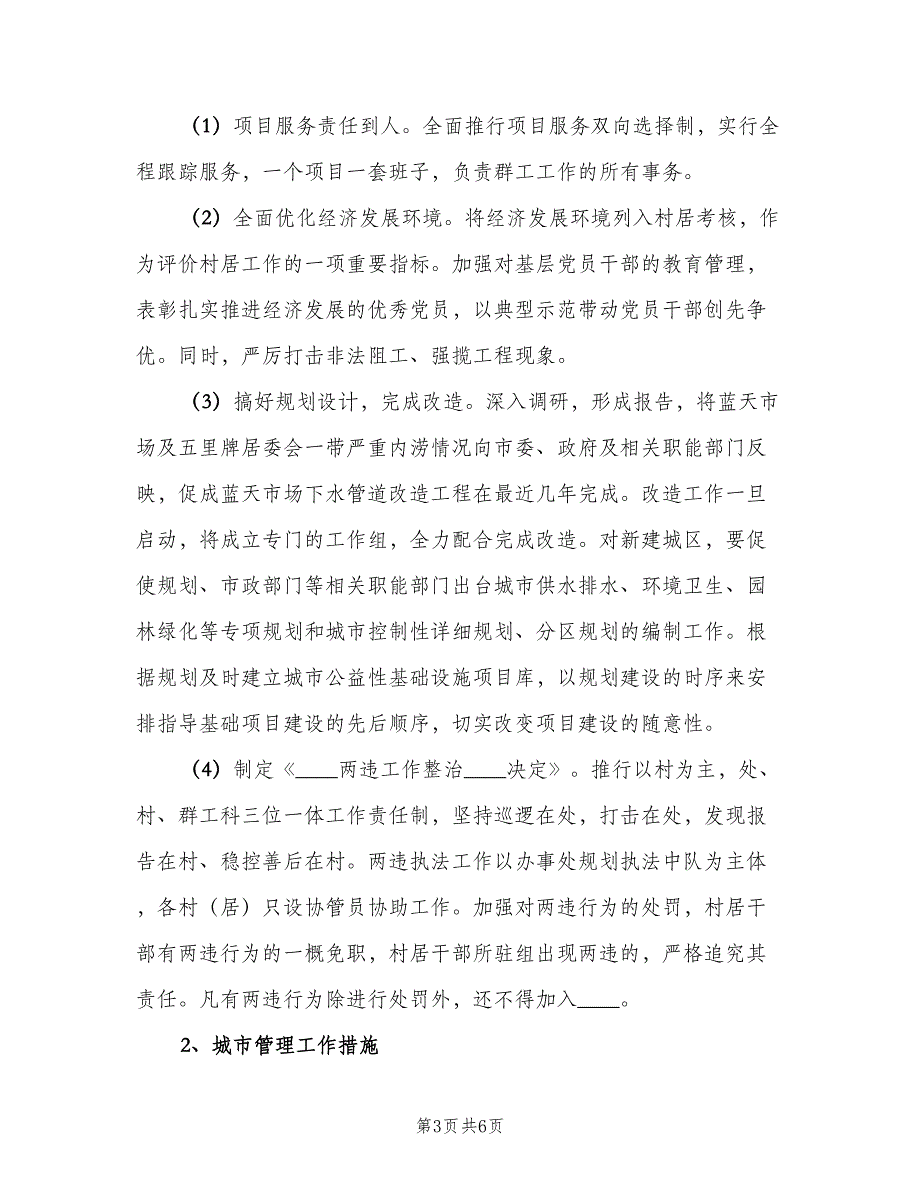 （1）项目服务责任到人。全面推行项目服务双向选择制，实行全
程跟踪服务，一个项目一套班子，负责群工工作的所有事务。
（2）全面优化经济发展环境。将经济发展环境列入村居考核，作
为评价村居工作的一项重要指标。加强对基层党员干部的教育管理，
表彰扎实推进经济发展的优秀党员，以典型示范带动党员干部创先争
优。同时，严厉打击非法阻工、强揽工程现象。
（3）搞好规划设计，完成改造。深入调研，形成报告，将蓝天市
场及五里牌居委会一带严重内涝情况向市委、政府及相关职能部门反
映，促成蓝天市场下水管道改造工程在最近几年完成。改造工作一旦
启动，将成立专门的工作组，全力配合完成改造。对新建城区，要促
使规划、市政部门等相关职能部门出台城市供水排水、环境卫生、园
林绿化等专项规划和城市控制性详细规划、分区规划的编制工作。根
据规划及时建立城市公益性基础设施项目库，以规划建设的时序来安
排指导基础项目建设的先后顺序，切实改变项目建设的随意性。
（4）制定《____两违工作整治____决定》。推行以村为主，处、
村、群工科三位一体工作责任制，坚持巡逻在处，打击在处，发现报
告在村、稳控善后在村。两违执法工作以办事处规划执法中队为主体
，各村（居）只设协管员协助工作。加强对两违行为的处罚，村居干
部有两违行为的一概免职，村居干部所驻组出现两违的，严格追究其
责任。凡有两违行为除进行处罚外，还不得加入____。
2、城市管理工作措施
第3页 共6页